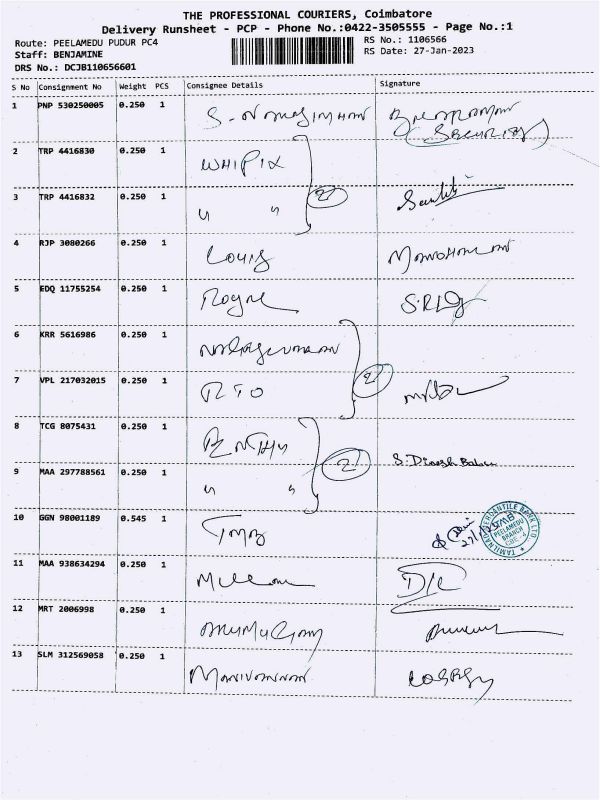 THE PROFESSIONAL COURIERS, Coimbatore
Delivery Runsheet - PCP - Phone No.:0422-3505555 - Page No.:1
Route: PEELAMEDU PUDUR PC4
Staff: BENJAMINE
DRS No.: DCJB110656601
RS No.: 1106566
RS Date: 27-Jan-2023
S No Consignment No Weight PCS Consignee Details Signature
1 PNP 530250005 0.250 1 (Security)
2 TRP 4416830 0.250 1 WHIPIX
3 TRP 4416832 0.250 1 " " 2
4 RJP 3080266 0.250 1 Louis Manoharan
5 EDQ 11755254 0.250 1
6 KRR 5616986 0.250 1
7 VPL 217032015 0.250 1 RTO 2
8 TCG 8075431 0.250 1
9 MAA 297788561 0.250 1 " " 2 S. Dinesh Babu
10 GGN 98001189 0.545 1 TMB
TAMILNAD MERCANTILE BANK LTD.
PEELAMEDU
BRANCH
CBE-4
11 MAA 938634294 0.250 1
12 MRT 2006998 0.250 1 Arumugam
13 SLM 312569058 0.250 1 Manivannan